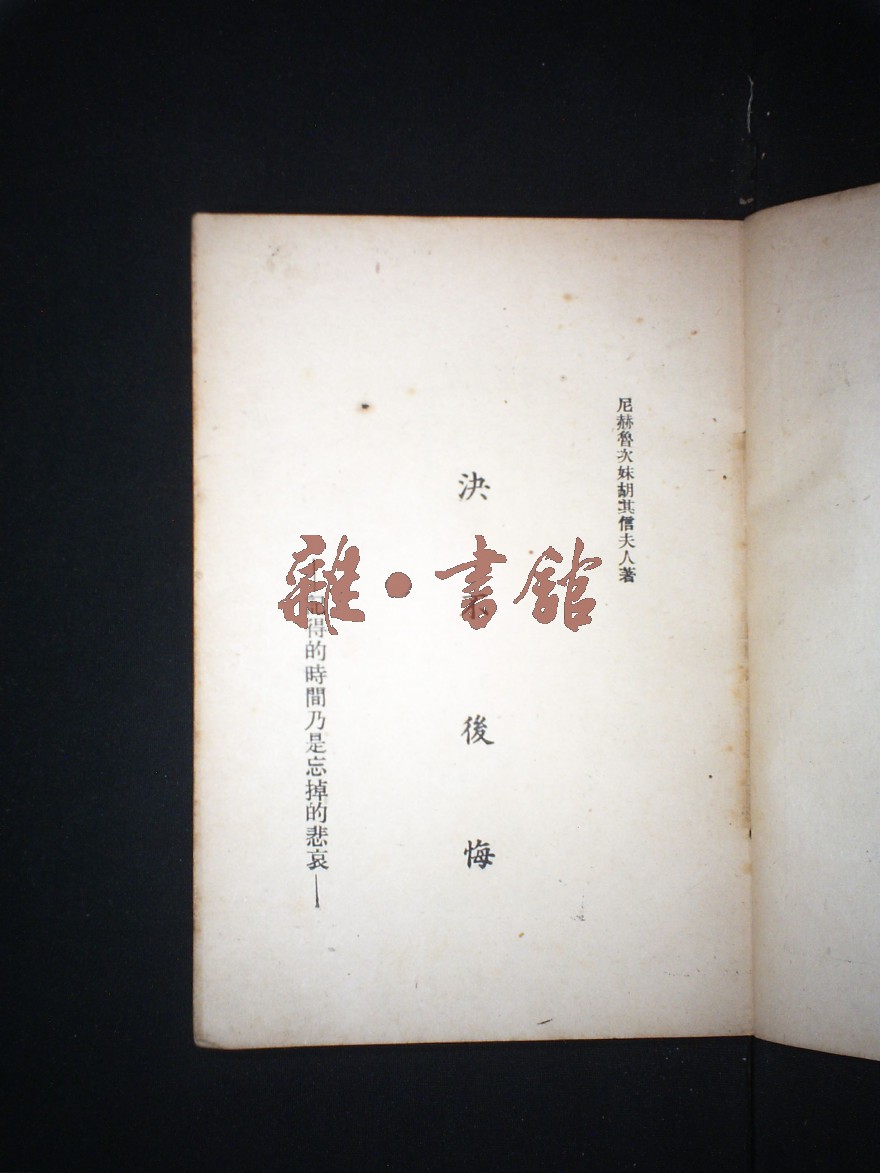 尼赫魯次妹胡其信夫人著
決不後悔
—記得的時間乃是忘掉的悲哀—
雜·書館